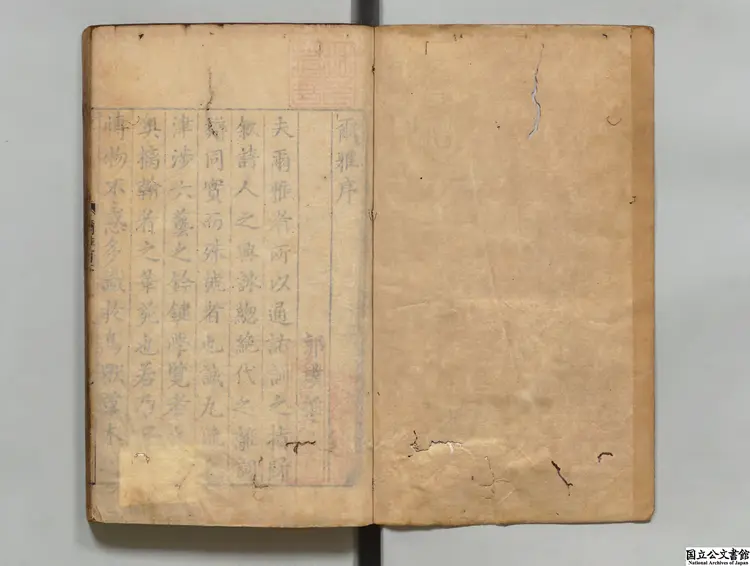 爾雅序
郭璞撰
夫爾雅者所以通詁訓之指歸
敘詩人之興詠緫絶代之離詞
辯同實而殊號者也誠九流之
津渉六藝之鈐鍵學覽者之
奥摛翰者之華苑也若乃可
博物不惑多識於鳥獸草木
国立公文書館
National Archives of Japan